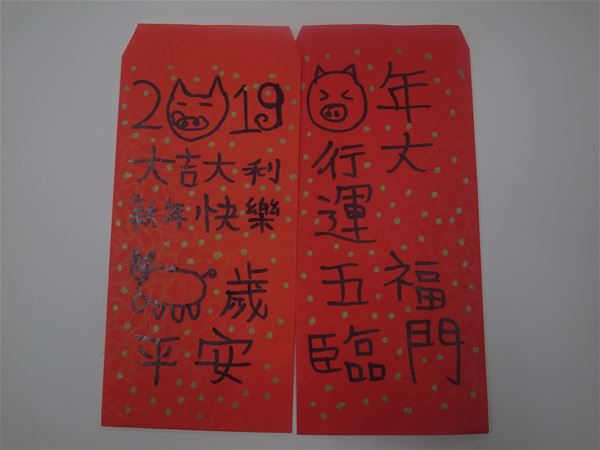 2 19
大吉大利
新年快樂
歲
平安
年
行大
運
五福
臨門